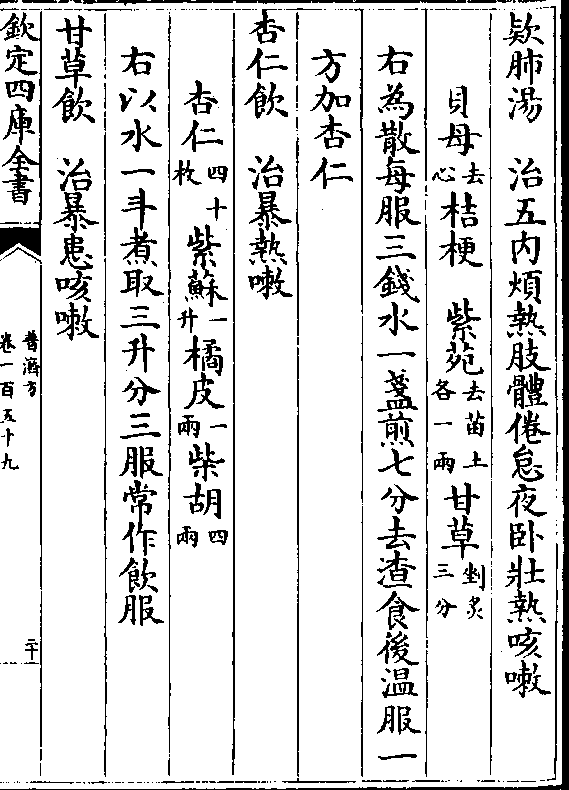 欵肺湯　治五内煩熱肢體倦怠夜卧壯熱咳嗽
貝母去心桔梗　紫苑去苗土各一兩甘草剉炙三分
右為散每服三錢水一盞煎七分去渣食後温服一
方加杏仁
杏仁飲　治暴熱嗽
杏仁四十枚紫蘇一升橘皮一兩柴胡四兩
右以水一斗煮取三升分三服常作飲服
甘草飲　治暴患咳嗽
欽定四庫全書
普濟方
卷一百五十九
二十